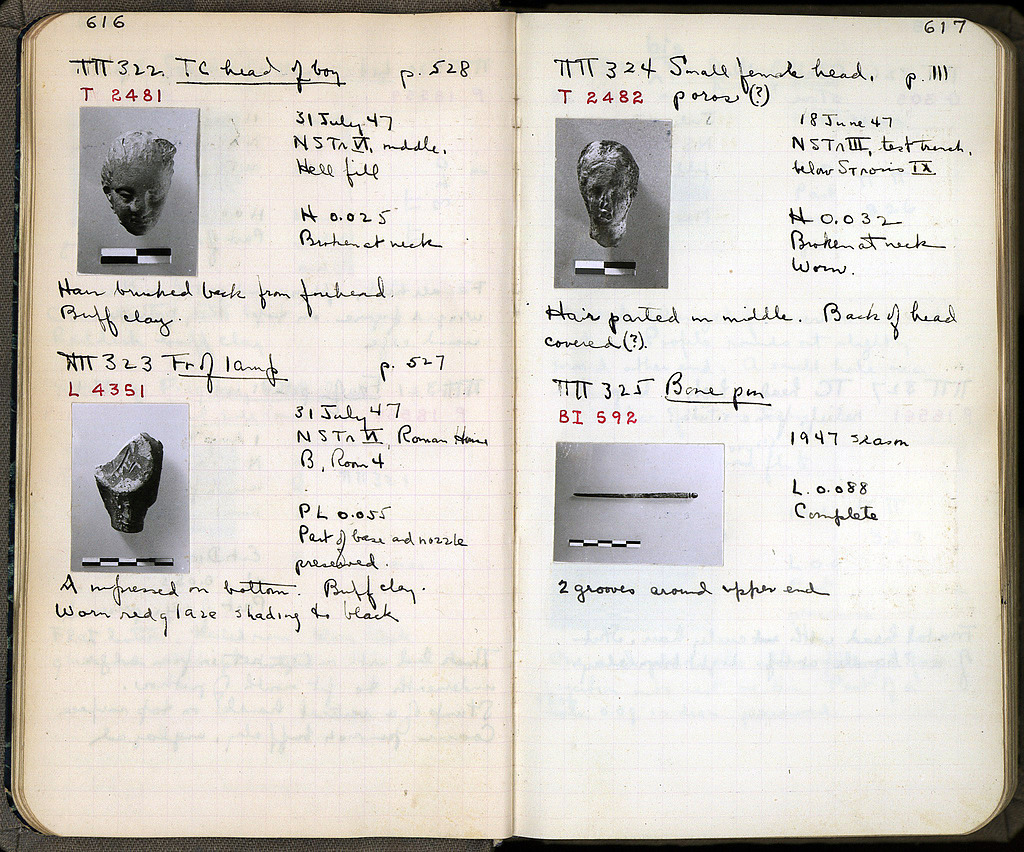 616
ΠΠ 322 TC head of boy p. 528
T 2481
31 July 47
N S Tr VI, middle.
Hell fill
H 0.025
Broken at neck
Hair brushed back from forehead.
Buff clay.
ΠΠ 323 Fr of lamp p. 527
L 4351
31 July 47
N S Tr VI, Roman House
B, Room 4
PL 0.055
Part of base and nozzle
preserved.
A impressed on bottom. Buff clay.
Worn red glaze shading to black
617
ΠΠ 324 Small female head, p. 111
T 2482 poros (?)
18 June 47
N S Tr III, test trench,
below Strosis IX
H 0.032
Broken at neck
Worn.
Hair parted in middle. Back of head
covered (?).
ΠΠ 325 Bone pin
BI 592
1947 season
L. 0.088
Complete
2 grooves around upper end